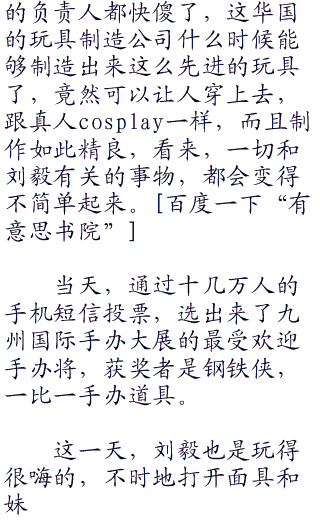 的负责人都快傻了，这华国
的玩具制造公司什么时候能
够制造出来这么先进的玩具
了，竟然可以让人穿上去，
跟真人cosplay一样，而且制
作如此精良，看来，一切和
刘毅有关的事物，都会变得
不简单起来。[百度一下“有
意思书院”]
当天，通过十几万人的
手机短信投票，选出来了九
州国际手办大展的最受欢迎
手办将，获奖者是钢铁侠，
一比一手办道具。
这一天，刘毅也是玩得
很嗨的，不时地打开面具和
妹